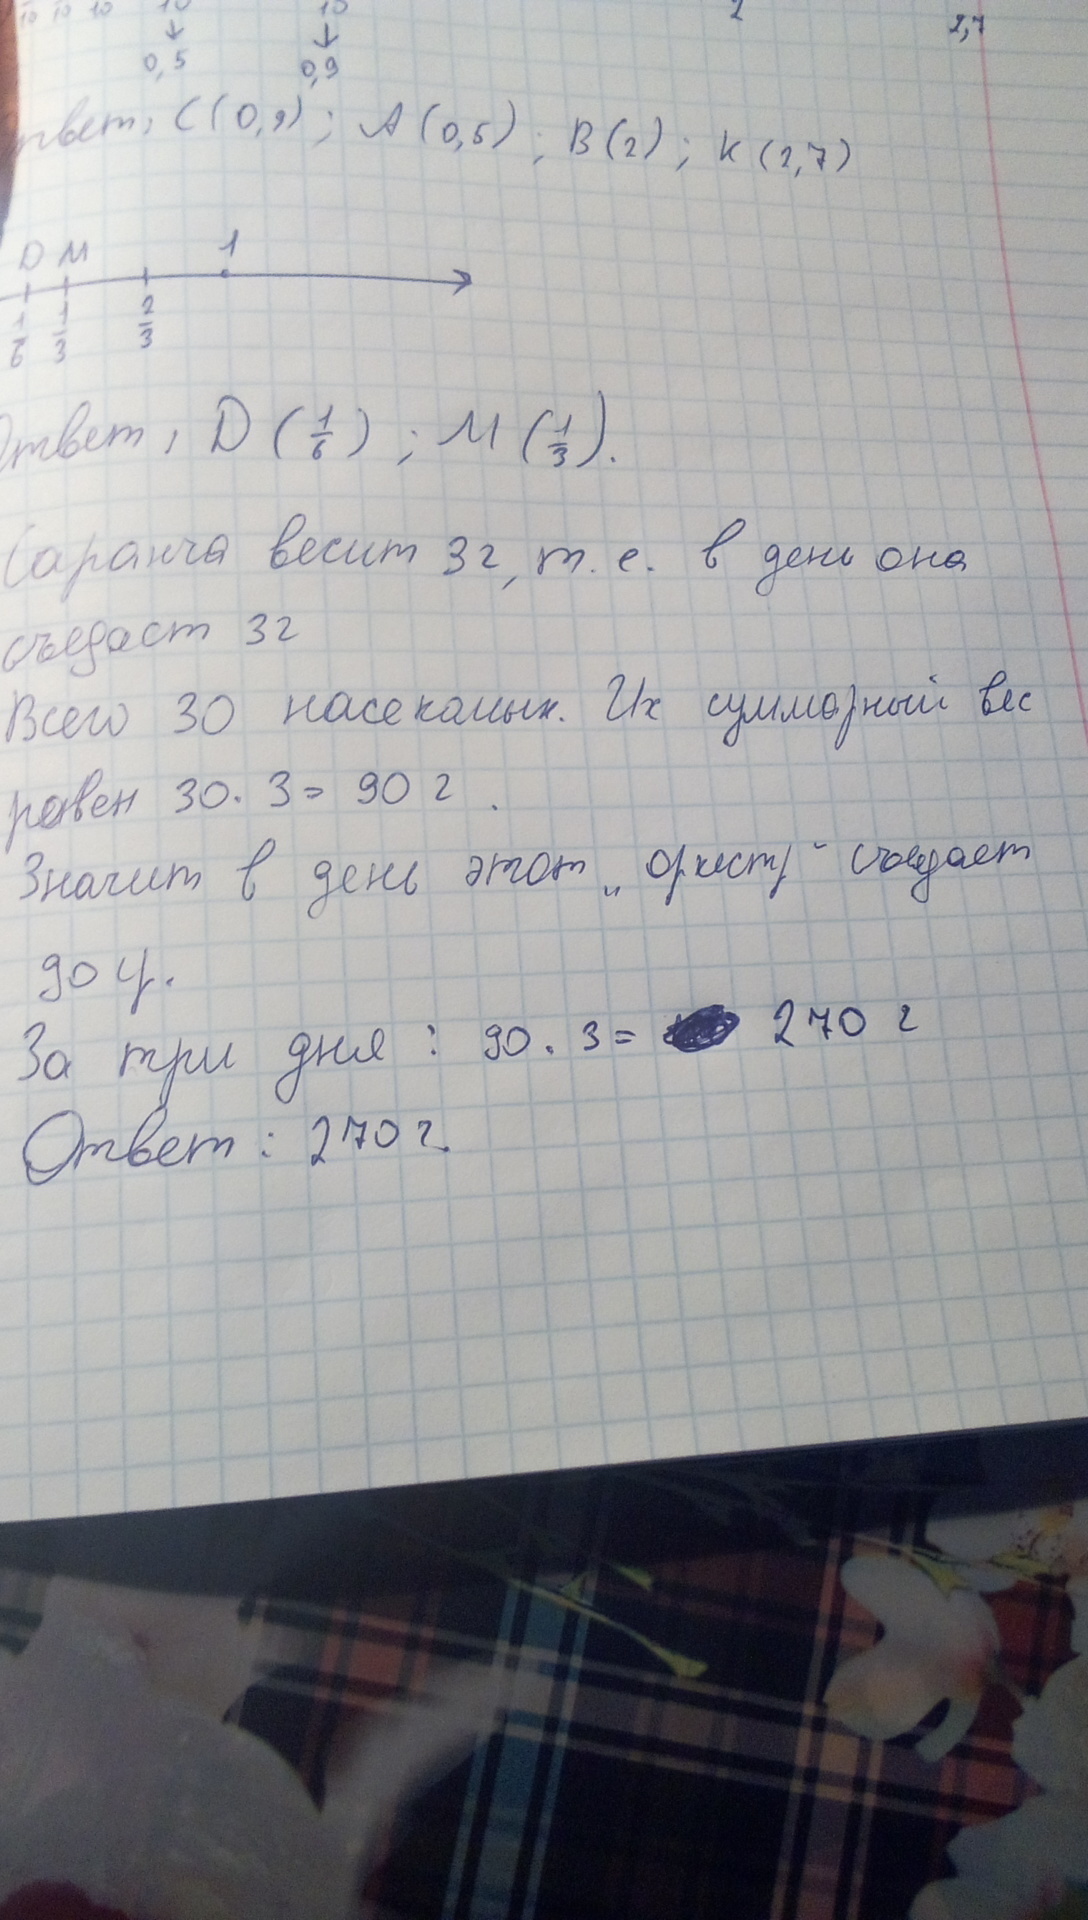 10 10 10 10 10 2 2,7
0,5 0,9
твет, C(0,9); A(0,5); B(2); K(2,7)
D M 1
1/6 1/3 2/3
Ответ, D(1/6); M(1/3).
Саранча весит 3г, т.е. в день она
съедаст 3г
Всего 30 насекамых. Их суммарный вес
равен 30·3=90 г.
Значит в день этот „оркестр" съедает
90 гр.
За три дня: 90·3= 270 г
Ответ: 270 г.